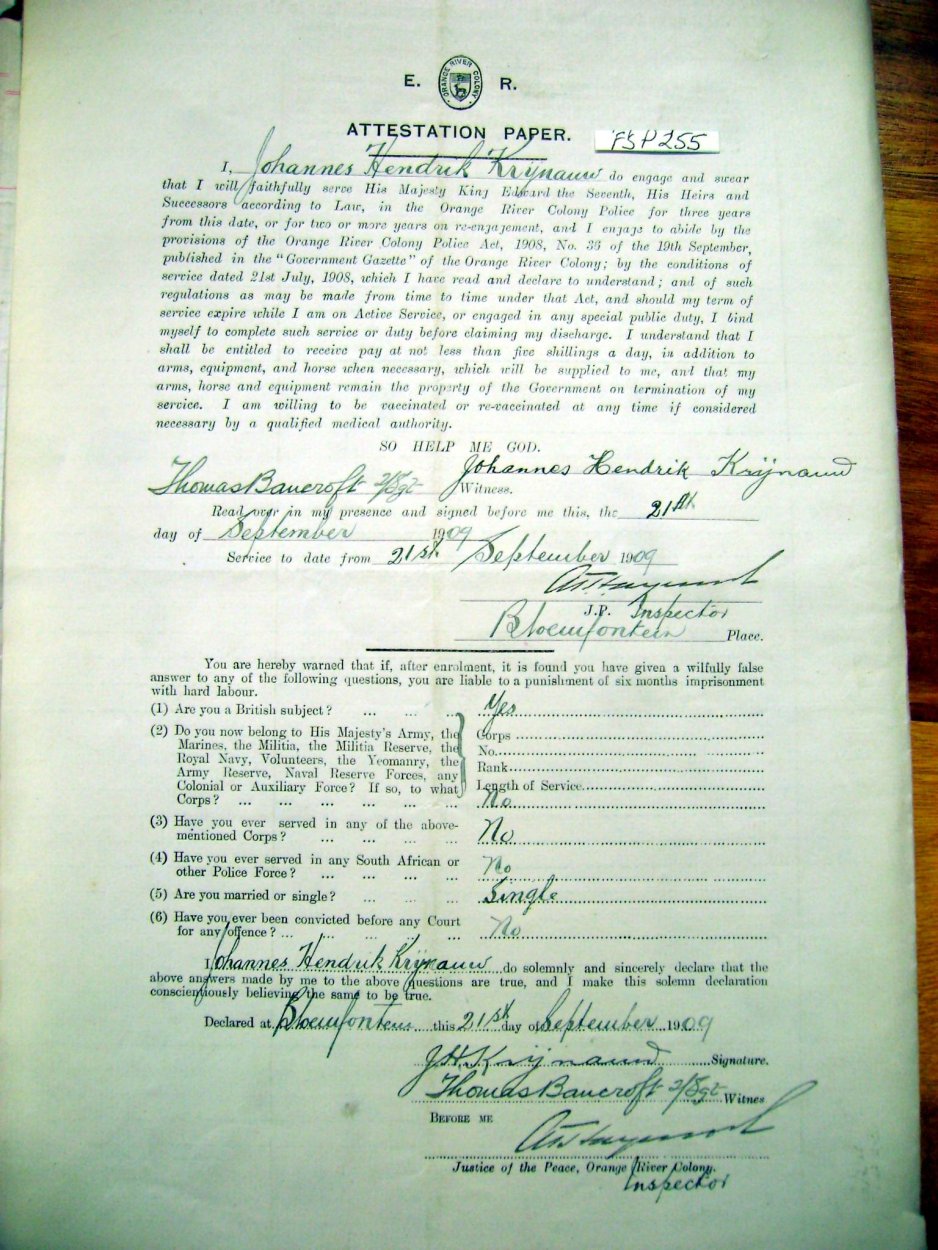 E. R.
ORANGE RIVER COLONY
ATTESTATION PAPER.
FSP255
I, Johannes Hendrik Krijnauw do engage and swear
that I will faithfully serve His Majesty King Edward the Seventh, His Heirs and
Successors according to Law, in the Orange River Colony Police for three years
from this date, or for two or more years on re-engagement, and I engage to abide by the
provisions of the Orange River Colony Police Act, 1908, No. 36 of the 19th September,
published in the "Government Gazette" of the Orange River Colony; by the conditions of
service dated 21st July, 1908, which I have read and declare to understand; and of such
regulations as may be made from time to time under that Act, and should my term of
service expire while I am on Active Service, or engaged in any special public duty, I bind
myself to complete such service or duty before claiming my discharge. I understand that I
shall be entitled to receive pay at not less than five shillings a day, in addition to
arms, equipment, and horse when necessary, which will be supplied to me, and that my
arms, horse and equipment remain the property of the Government on termination of my
service. I am willing to be vaccinated or re-vaccinated at any time if considered
necessary by a qualified medical authority.
SO HELP ME GOD.
Johannes Hendrik Krijnauw
Thomas Bancroft 2/Sgt Witness.
Read over in my presence and signed before me this, the 21st
day of September 1909
Service to date from 21st September 1909
J.P. Inspector
Bloemfontein Place.
You are hereby warned that if, after enrolment, it is found you have given a wilfully false
answer to any of the following questions, you are liable to a punishment of six months imprisonment
with hard labour.
(1) Are you a British subject? ... ... ... Yes
(2) Do you now belong to His Majesty's Army, the
Marines, the Militia, the Militia Reserve, the
Royal Navy, Volunteers, the Yeomanry, the
Army Reserve, Naval Reserve Forces, any
Colonial or Auxiliary Force? If so, to what
Corps? ... ... ... ... ... ...
Corps
No.
Rank
Length of Service
No
(3) Have you ever served in any of the above-
mentioned Corps? ... ... ... ... No
(4) Have you ever served in any South African or
other Police Force? ... ... ... ... No
(5) Are you married or single? ... ... ... Single
(6) Have you ever been convicted before any Court
for any offence? ... ... ... ... ... No
I, Johannes Hendrik Krijnauw do solemnly and sincerely declare that the
above answers made by me to the above questions are true, and I make this solemn declaration
conscientiously believing the same to be true.
Declared at Bloemfontein this 21st day of September 1909
J.H. Krijnauw Signature.
Thomas Bancroft 2/Sgt Witnes
BEFORE ME
Justice of the Peace, Orange River Colony.
Inspector